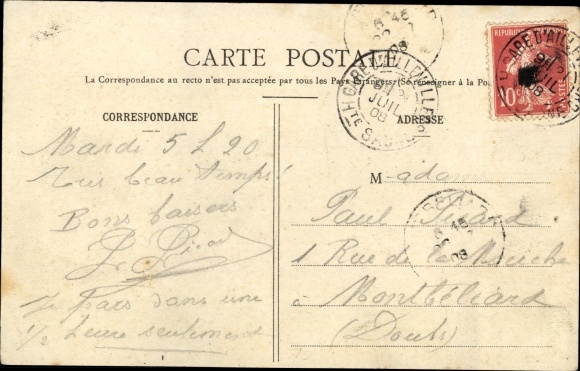 CARTE POSTALE
La Correspondance au recto n'est pas acceptée par tous les Pays Étrangers (Se renseigner à la Po
CORRESPONDANCE
ADRESSE
Mardi 5 h 20
Très beau temps!
Bons baisers
P. Picard
Je pars dans une
1/2 heure seulement
Madame
Paul
1 Rue de la Mouche
à Montbéliard
(Doubs)
REPUBLIQUE
10
GARE D'ALLEVILLE
JUIL
08
Hte SAONE
6 45
08